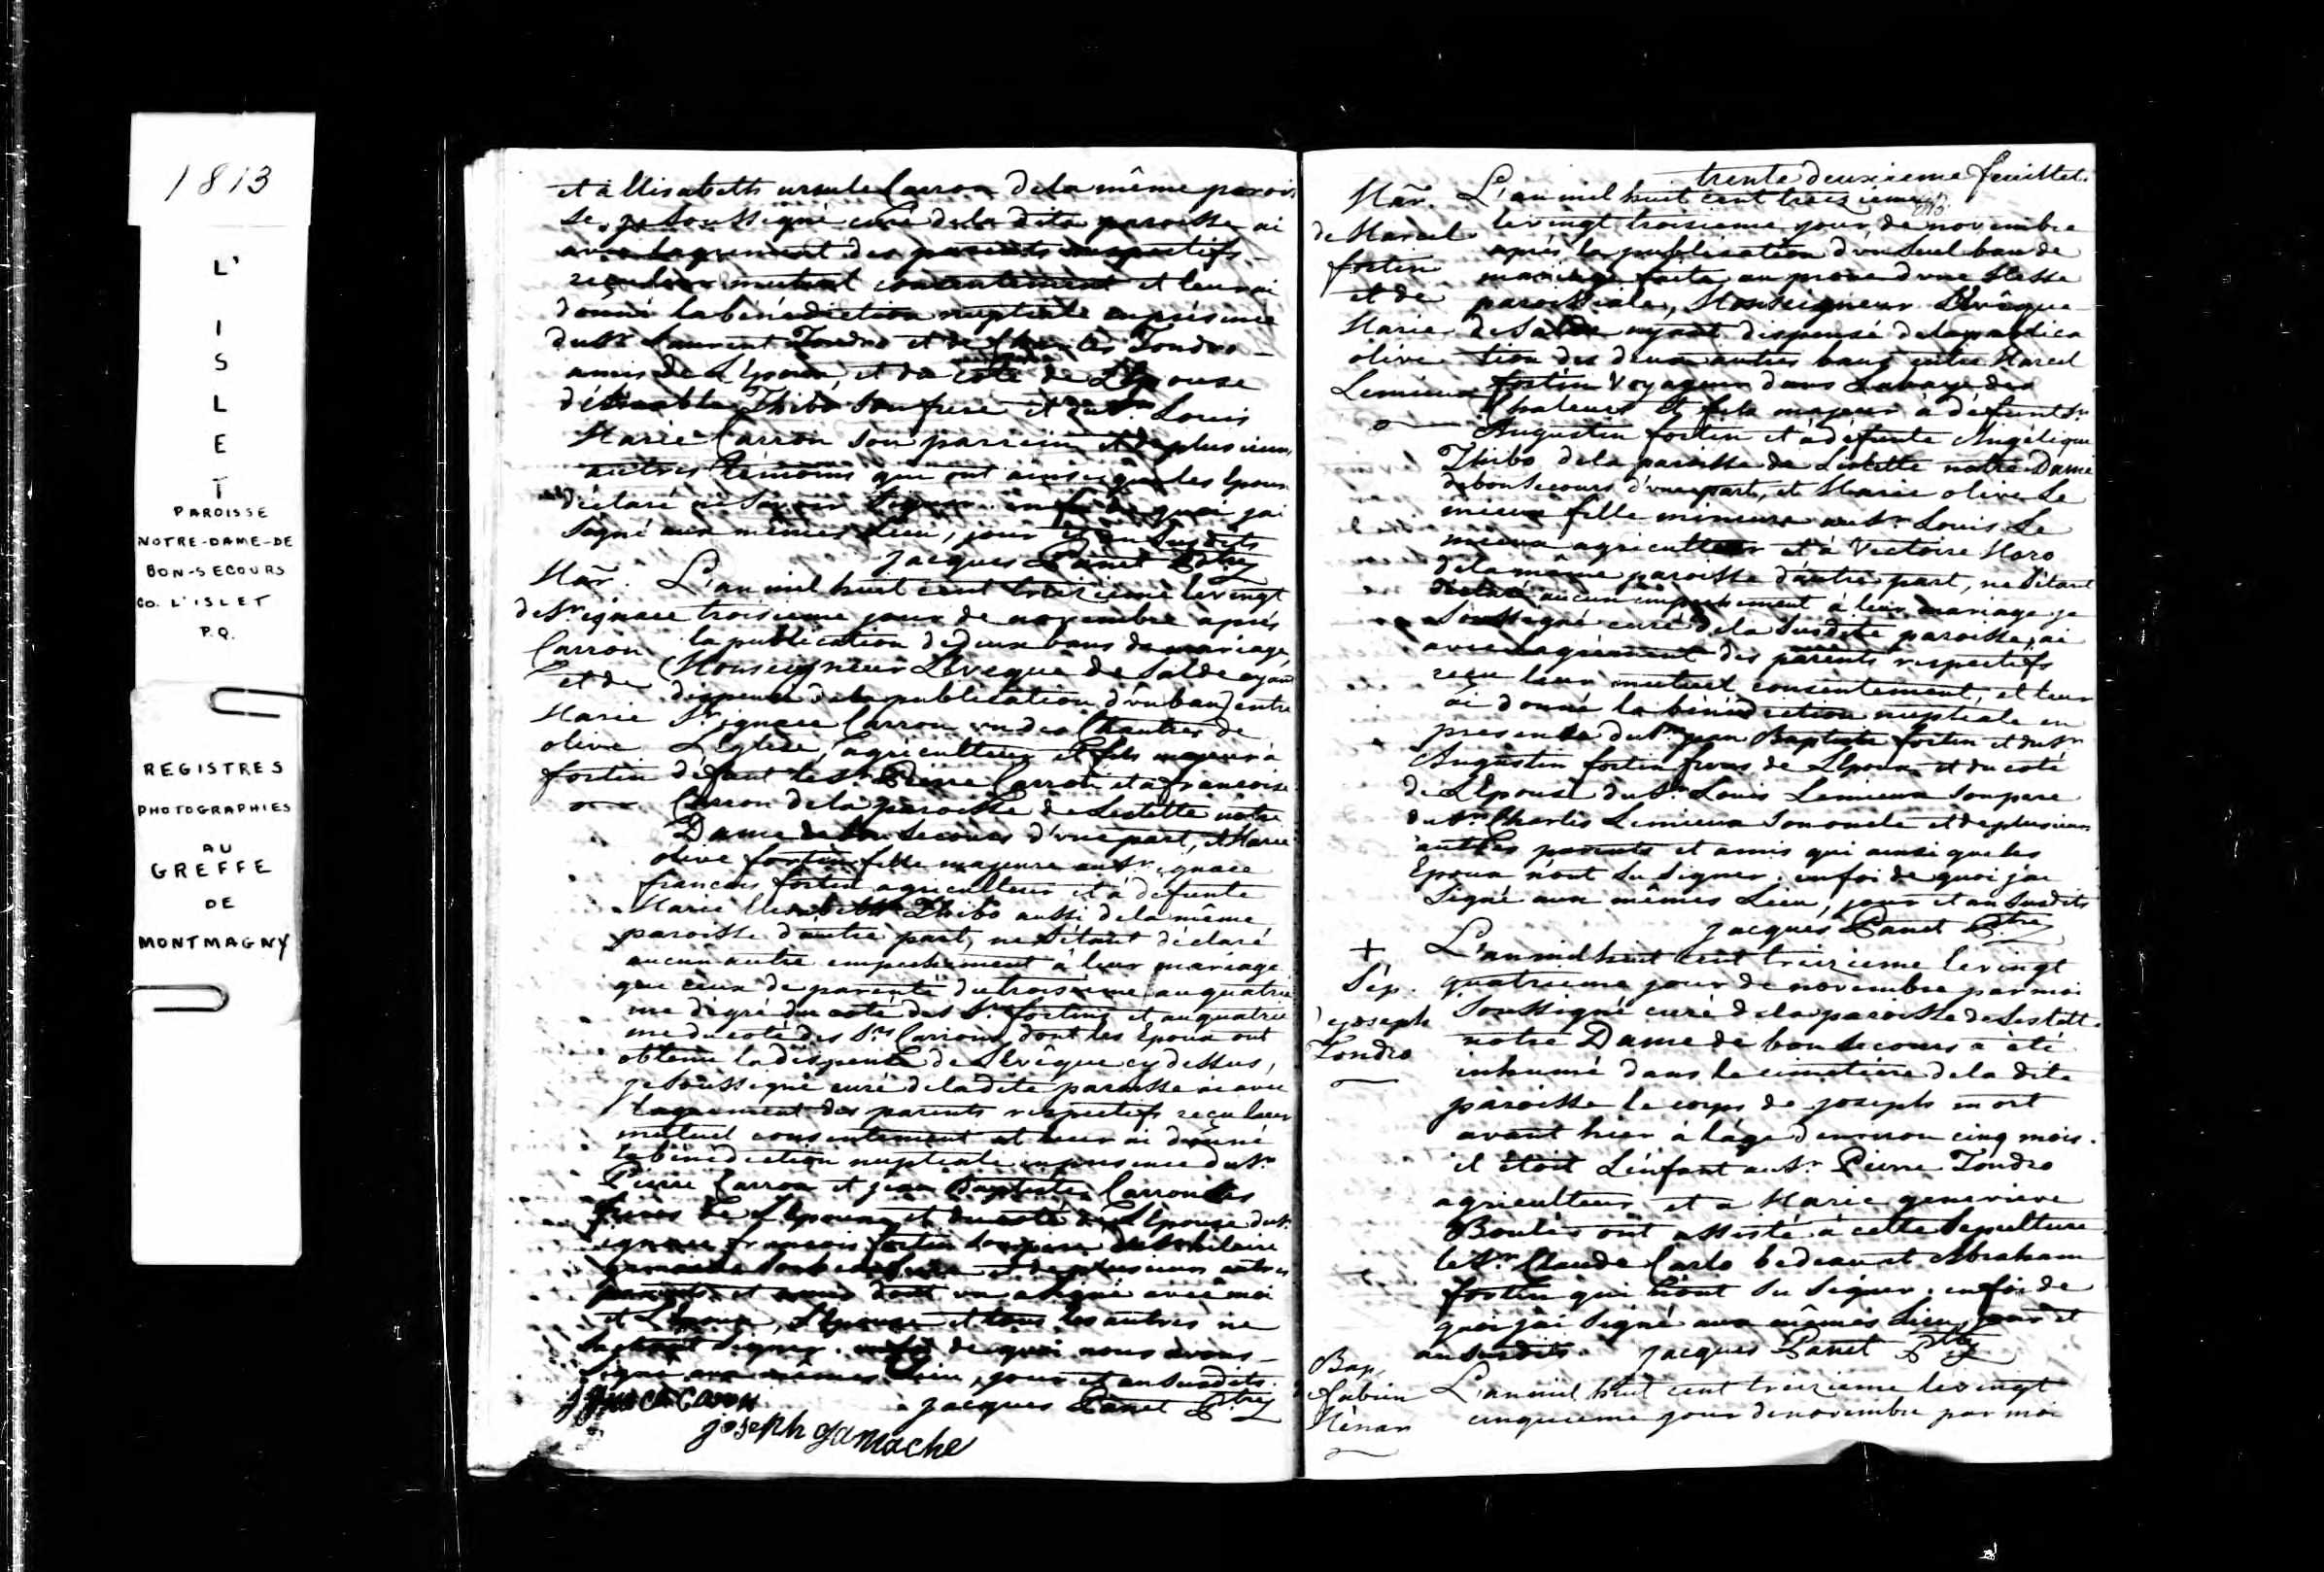 1813
L'
I
S
L
E
T
PAROISSE
NOTRE-DAME-DE
BON-SECOURS
CO. L'ISLET
P.Q.
REGISTRES
PHOTOGRAPHIES
AU
GREFFE
DE
MONTMAGNY
et à Elisabeth ursule Carron dela même parois
se, je soussigné curé dela dite paroisse ai
avec lagrement des parents respectifs
reçu leur mutuel consentement et leur ai
donné labénédiction nuptiale enprésence
du Sr Laurent Tondro et de Charles Tondro
amis de L'Epoux, et du coté de L'Epouse
Thibo son frere et du Sr Louis
Marie Carron son parrein et deplusieurs
autres témoins qui ont ainsi que les Epoux
déclaré ne savoir signer. en foi de quoi jai
signé aux mêmes Lieu, jour et an susdits
jacques Panet Ptre
Mar. L'an mil huit cent treizieme levingt
de Sr ignace troisieme jour de novembre après
Carron la publication de deux bans de mariage,
et de Monseigneur L'Eveque de Saldes ayant
dispensé dela publication d'un ban, entre
Marie Sr ignace Carron un des Chantres de
olive L'Eglise, agriculteur et fils majeur à
fortin défunt le Sr Pierre Carron et à francoise
Carron dela paroisse de Listette notre
Dame de bon secours d'une part, et Marie
olive fortin fille majeure au Sr ignace
francois fortin agriculteur et à défunte
Marie Elisabeth Thibo aussi dela même
paroisse d'autre part, ne s'étant déclaré
aucun autre empechement à leur mariage
que ceux de parenté du troisieme au quatrie
me dégré du coté des Srs fortins et au quatrie
me du coté des Srs Carrons, dont les Epoux ont
obtenu la dispense de L'Evêque cy dessus,
je soussigné curé dela dite paroisse ai avec
lagrement des parents respectifs reçu leur
mutuel consentement et leur ai donné
la bénédiction nuptiale en presence du Sr
Pierre Carron et jean Baptiste Carron ses
freres de L'Epoux, et du coté de L'Epouse du Sr
ignace francois fortin son pere du Sr hilaire
et de plusieurs autres
parents et amis dont un a signé avec moi
et L'Epoux, L'Epouse et tous les autres ne
sachant signer. en foi de quoi nous avons
signé aux mêmes Lieu, jour et an susdits.
ignace Caron jacques Panet Ptre
joseph gamache
trente deuxieme feuillet.
Mar. L'an mil huit cent treizieme
de Marcel levingt troisieme jour de novembre
fortin après la publication d'un seul ban de
et de mariage faite au prone d'une Messe
paroissiale, Monseigneur L'Evêque
Marie de Saldes ayant dispensé dela publica
olive tion des deux autres bans entre Marcel
Lemieux fortin Voyageur dans La baye des
Chaleurs et fils majeur à défunt Sr
Augustin fortin et à défunte Angélique
Thibo dela paroisse de Listette notre Dame
de bon secours d'une part, et Marie olive Le
mieux fille mineure au Sr Louis Le
mieux agriculteur et à Victoire Moro
dela même paroisse d'autre part, ne s'étant
déclaré aucun empechement à leur mariage je
soussigné curé dela susdite paroisse, ai
avec lagrément des parents respectifs
reçu leur mutuel consentement, et leur
ai donné la bénédiction nuptiale en
presence du Sr jean Baptiste fortin et du Sr
Augustin fortin freres de L'Epoux et du coté
de L'Epouse du Sr Louis Lemieux son pere
du Sr Charles Lemieux son oncle et de plusieurs
autres parents et amis qui ainsi que les
Epoux n'ont su signer. en foi de quoi jai
signé aux mêmes Lieu, jour et an susdits
jacques Panet Ptre
+ L'an mil huit cent treizieme le vingt
Sép. quatrieme jour de novembre par moi
joseph soussigné curé dela paroisse de Listette
Tondro notre Dame de bon secours a été
inhumé dans le cimetiere dela dite
paroisse le corps de joseph mort
avant hier à lâge d'environ cinq mois.
il étoit L'enfant au Sr Pierre Tondro
agriculteur et a Marie genevieve
Boulés ont assisté à cette Sepulture
le Sr Claude Carlo bedeau et Abraham
fortin qui n'ont su signer. en foi de
quoi jai signé aux mêmes Lieu, jour et
an susdits. jacques Panet Ptre
Bap.
fabien L'an mil huit cent treizieme le vingt
Ménar cinquieme jour de novembre par moi